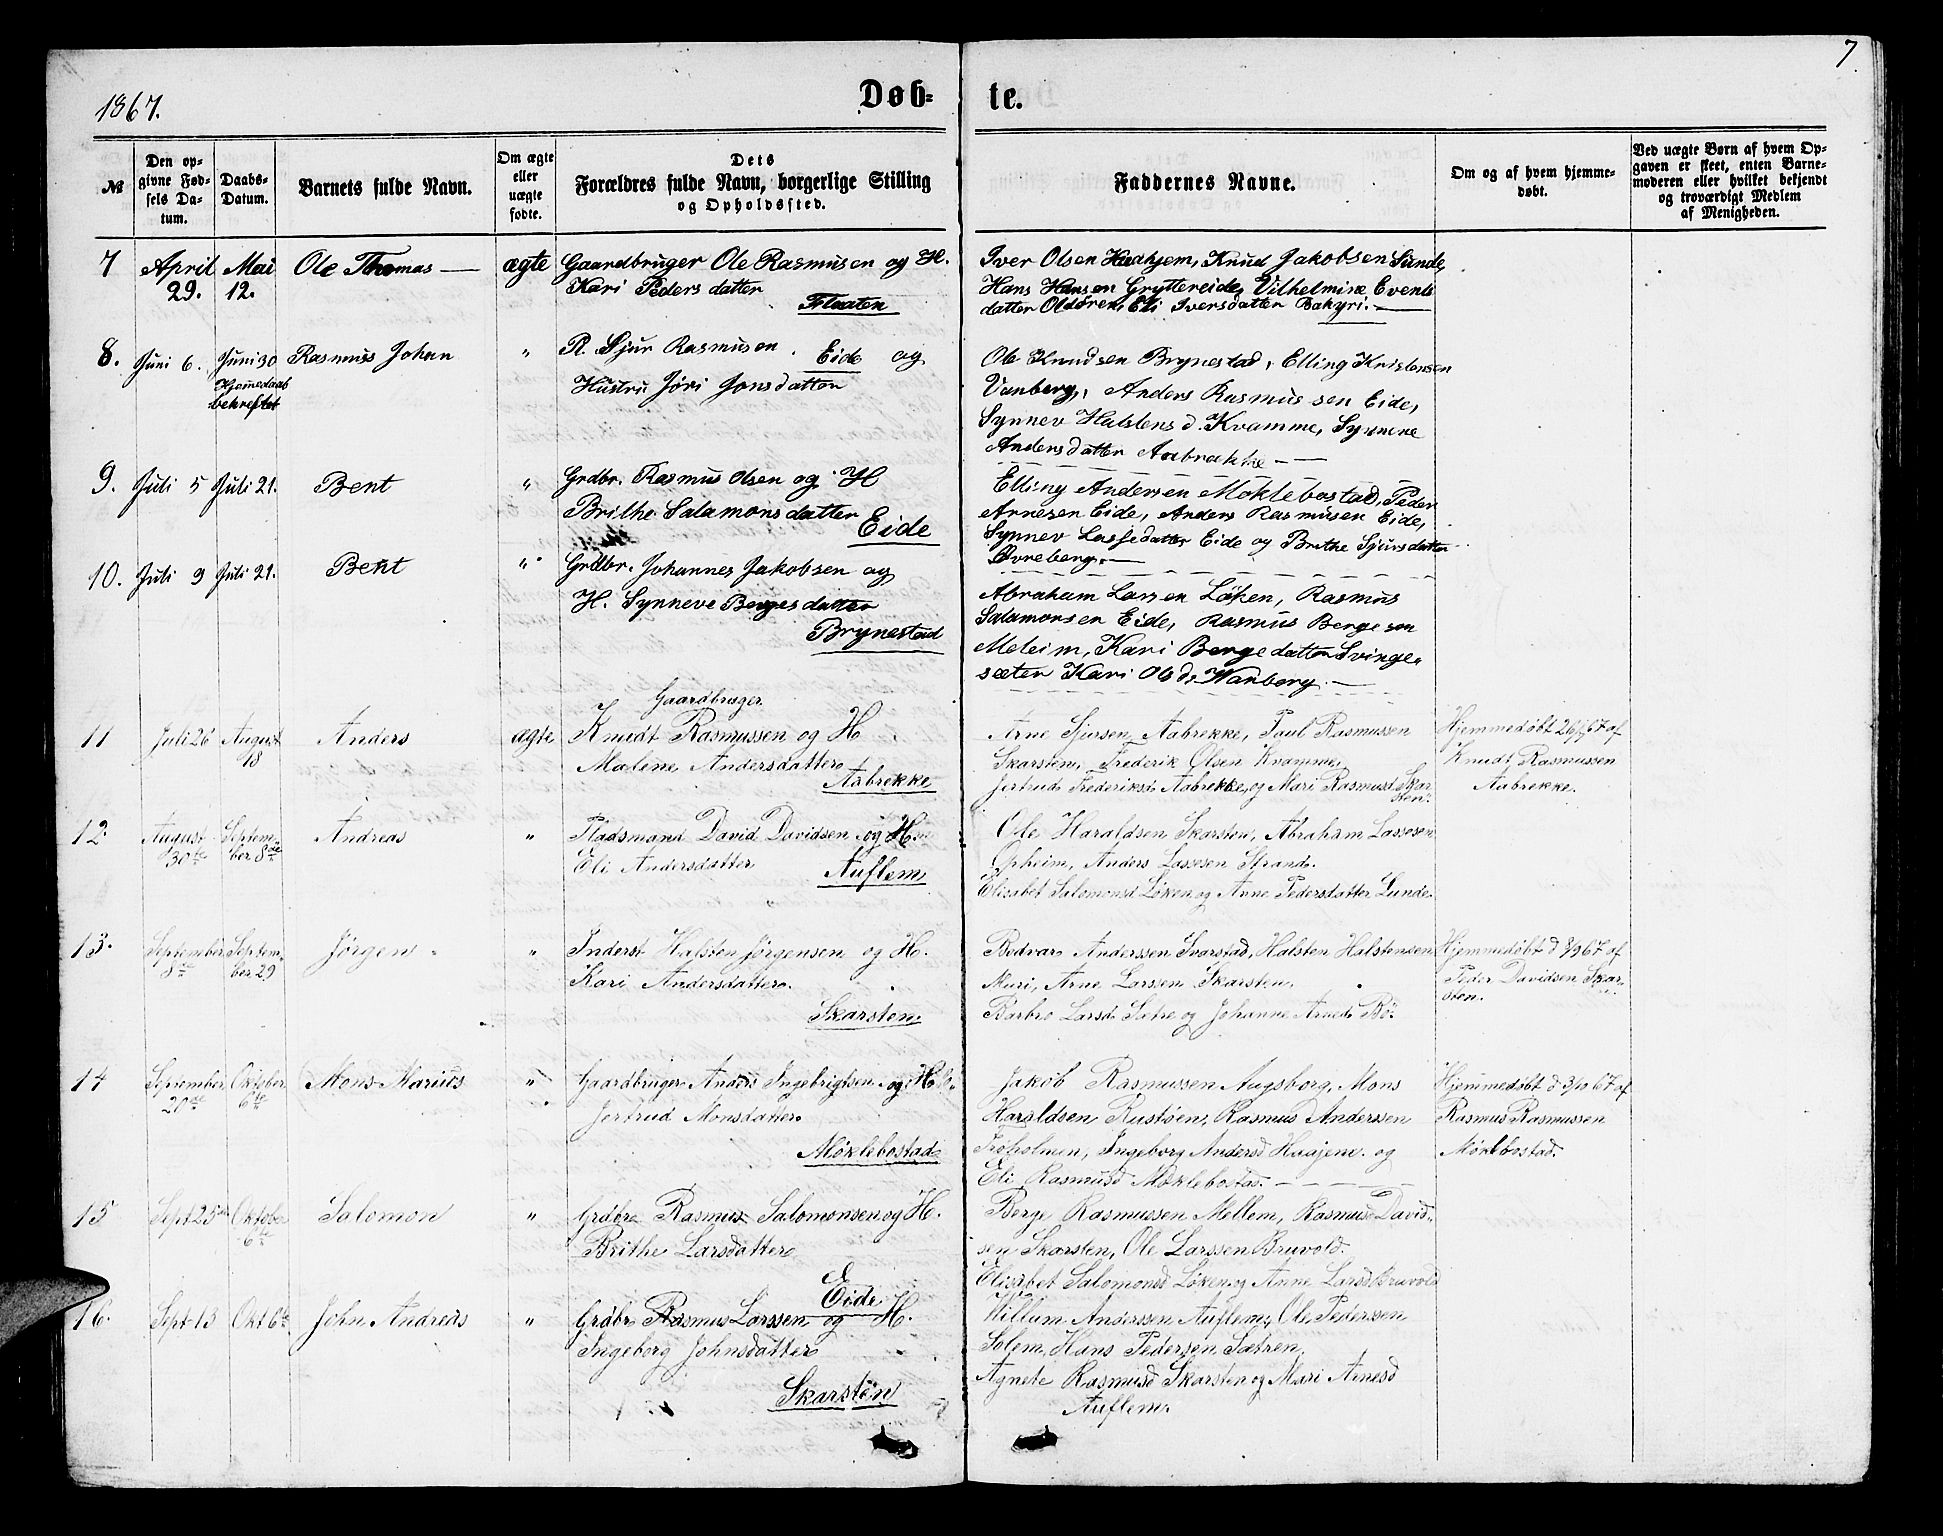 7
1867.
Døb-
te.
№
Den op-
givne Fød-
sels Da-
tum.
Daabs-
Datum.
Barnets fulde Navn.
Om ægte
eller
uægte
fødte.
Dets
Forældres fulde Navn, borgerlige Stilling
og Opholdssted.
Faddernes Navne.
Om og af hvem hjemme-
døbt.
Ved uægte Børn af hvem Op-
gaven er skeet, enten Barne-
moderen eller hvilket bekjendt
og troværdigt Medlem
af Menigheden.
7
April
29.
Mai
12.
Ole Thomas
ægte
Gaardbruger Ole Rasmusen og H.
Kari Peders datter
Flaaten
Iver Olsen Huahjem, Knud Jakobsen Sunde,
Hans Hansen Gryttereide, Vilhelmine Events
datter Oldøren, Eli Iversdatter Bakyri.
8.
Juni 6.
Juni 30
Hjemedaab
bekreftet
Rasmus Johan
"
P. Sjur Rasmusen. Eide og
Hustru Jøri Jonsdatter
Ole Knudsen Brynestad, Elling Kristensen
Vanberg, Anders Rasmussen Eide,
Synnev Halstens d. Kvamme, Synneve
Andersdatter Aabrekke
9.
Juli 5
Juli 21.
Bent
"
Grdbr. Rasmus Olsen og H
Brithe Salamons datter
Eide
Elling Andersen Møklebostad, Peder
Arnesen Eide, Anders Rasmusen Eide,
Synnev Lassedatter Eide og Brithe Sjursdatter
Øvreberg.
10.
Juli 9
Juli 21.
Bent
"
Grdbr. Johannes Jakobsen og
H. Synneve Berges datter
Brynestad
Abraham Larsen Løken, Rasmus
Salamonsen Eide, Rasmus Bergeson
Meleim, Kari Bergedatter Svinge-
sæter Kari Ols d. Wanberg.
11
Juli 26
August
18
Anders
ægte
Gaardbruger
Knudt Rasmussen og H.
Malene Andersdatter
Aabrekke
Arne Sjursen Aabrekke, Paul Rasmussen
Skarsten, Frederik Olsen Kvamme,
Jertrud Frederiksd Aabrekke, og Mari Rasmusd Skar
sten.
Hjemmedøbt 26/7 67 af
Knudt Rasmussen
Aabrekke.
12.
August
30te
Septem-
ber 8de
Andreas
"
Pladsmand David Davidsen og H.
Eli Andersdatter
Auflem
Ole Haraldsen Skarsten, Abraham Lassesen
Opheim, Anders Lassesen Strand.
Elisabet Salomonsd Løken og Anne Pedersdatter Lunde.
13.
September
8de
Septem-
ber 29
Jørgen
"
Inderst Halsten Jørgensen og H.
Kari Andersdatter.
Skarsten.
Bodvar Anderssen Svarstad, Halsten Halstensen
Muri, Arne Larssen Skarsten.
Barbro Larsd. Sætre og Johanne Arnesd. Bø.
Hjemmedøbt d 8/9 67 af
Peder Davidsen Skar-
sten.
14
September
20de
Oktober
6te
Mons Marius
"
Gaardbruger Anders Ingebrigtsen og H.
Jertrud Monsdatter
Møklebostad
Jakob Rasmussen Augsborg, Mons
Haraldsen Rustøen, Rasmus Anderssen
Frøholmen, Ingeborg Andersd Haajene og
Eli Rasmusd Møklebostad.
Hjemmedøbt d 3/10 67 af
Rasmus Rasmussen
Møklbostad.
15
Sept 25
Oktober
6te
Salomon
"
Grdbr Rasmus Salomonsen og H.
Brithe Larsdatter
Eide
Berge Rasmussen Mellem, Rasmus David-
sen Skarsten, Ole Larssen Bruvold.
Elisabet Salomonsd Løken og Anne Larsd Bruvold
16.
Sept 13
Okt 6te
John Andreas
"
Grdbr Rasmus Larssen og H.
Ingeborg Johnsdatter
Skarsten
Willum Anderssen Auflem, Ole Pederssen
Solem, Hans Pedersen Sætren,
Agnete Rasmusd Skarsten og Mari Arnesd
Auflem.